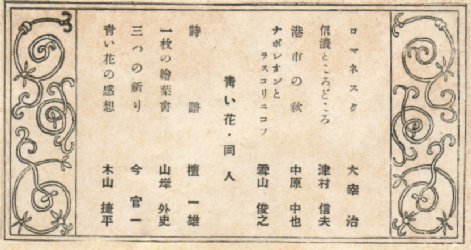 ロマネスク 太宰治
信濃ところどころ 津村信夫
港市の秋 中原中也
ナポレオンと
ラスコリニコフ 雪山俊之
青い花・同人
詩譜 檀一雄
一枚の繪葉書 山岸外史
三つの祈り 今官一
青い花の感想 木山捷平